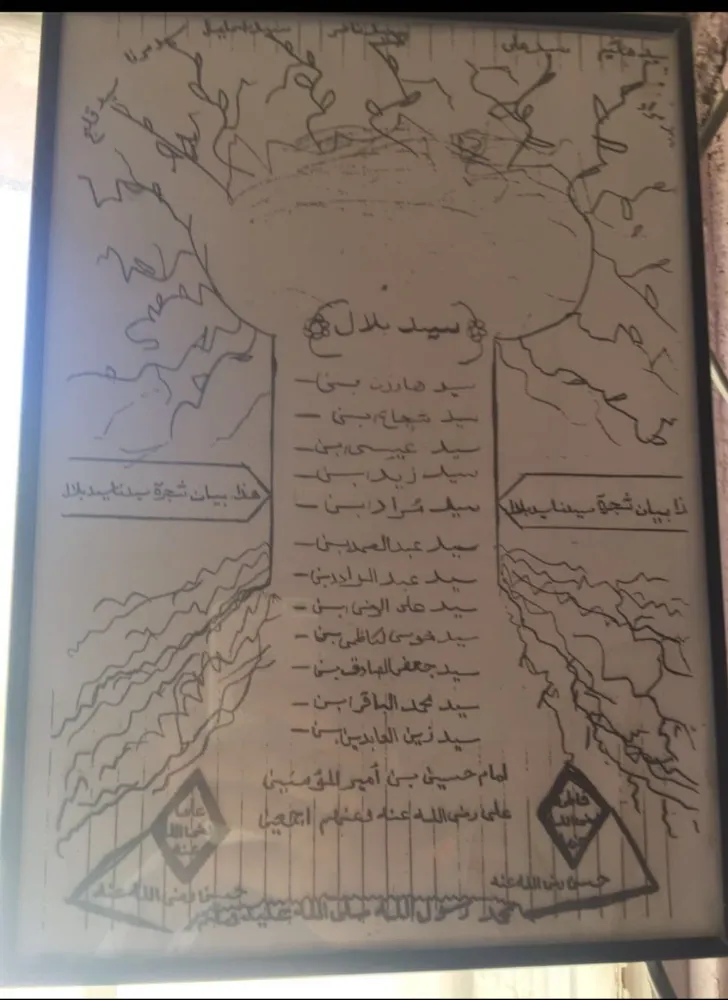 سيد قاسم
سيد اسماعيل
سيد ناصر
سيد علی
سيد هاشم
سيد بلال
سيد هارون بن
سيد شجاع بن
سيد عيسى بن
سيد زيد بن
سيد مراد بن
سيد عبدالصمد بن
سيد عبد الواد بن
سيد على الرضى بن
سيد موسى الكاظم بن
سيد جعفر الصادق بن
سيد محمد الباقر ابن
سيد زين العابدين بن
امام حسين بن أمير المؤمنين
على رضى الله عنه وعنهم اجمعين
هذا بيان شجرة سيدنا سيد بلال
ذا بيان شجرة سيدنا سيد بلال
على رضى الله عنه
فاطمة رضى الله عنه
حسين رضى الله عنه
حسن رضى الله عنه
محمد رسول الله صلى الله عليه وسلم